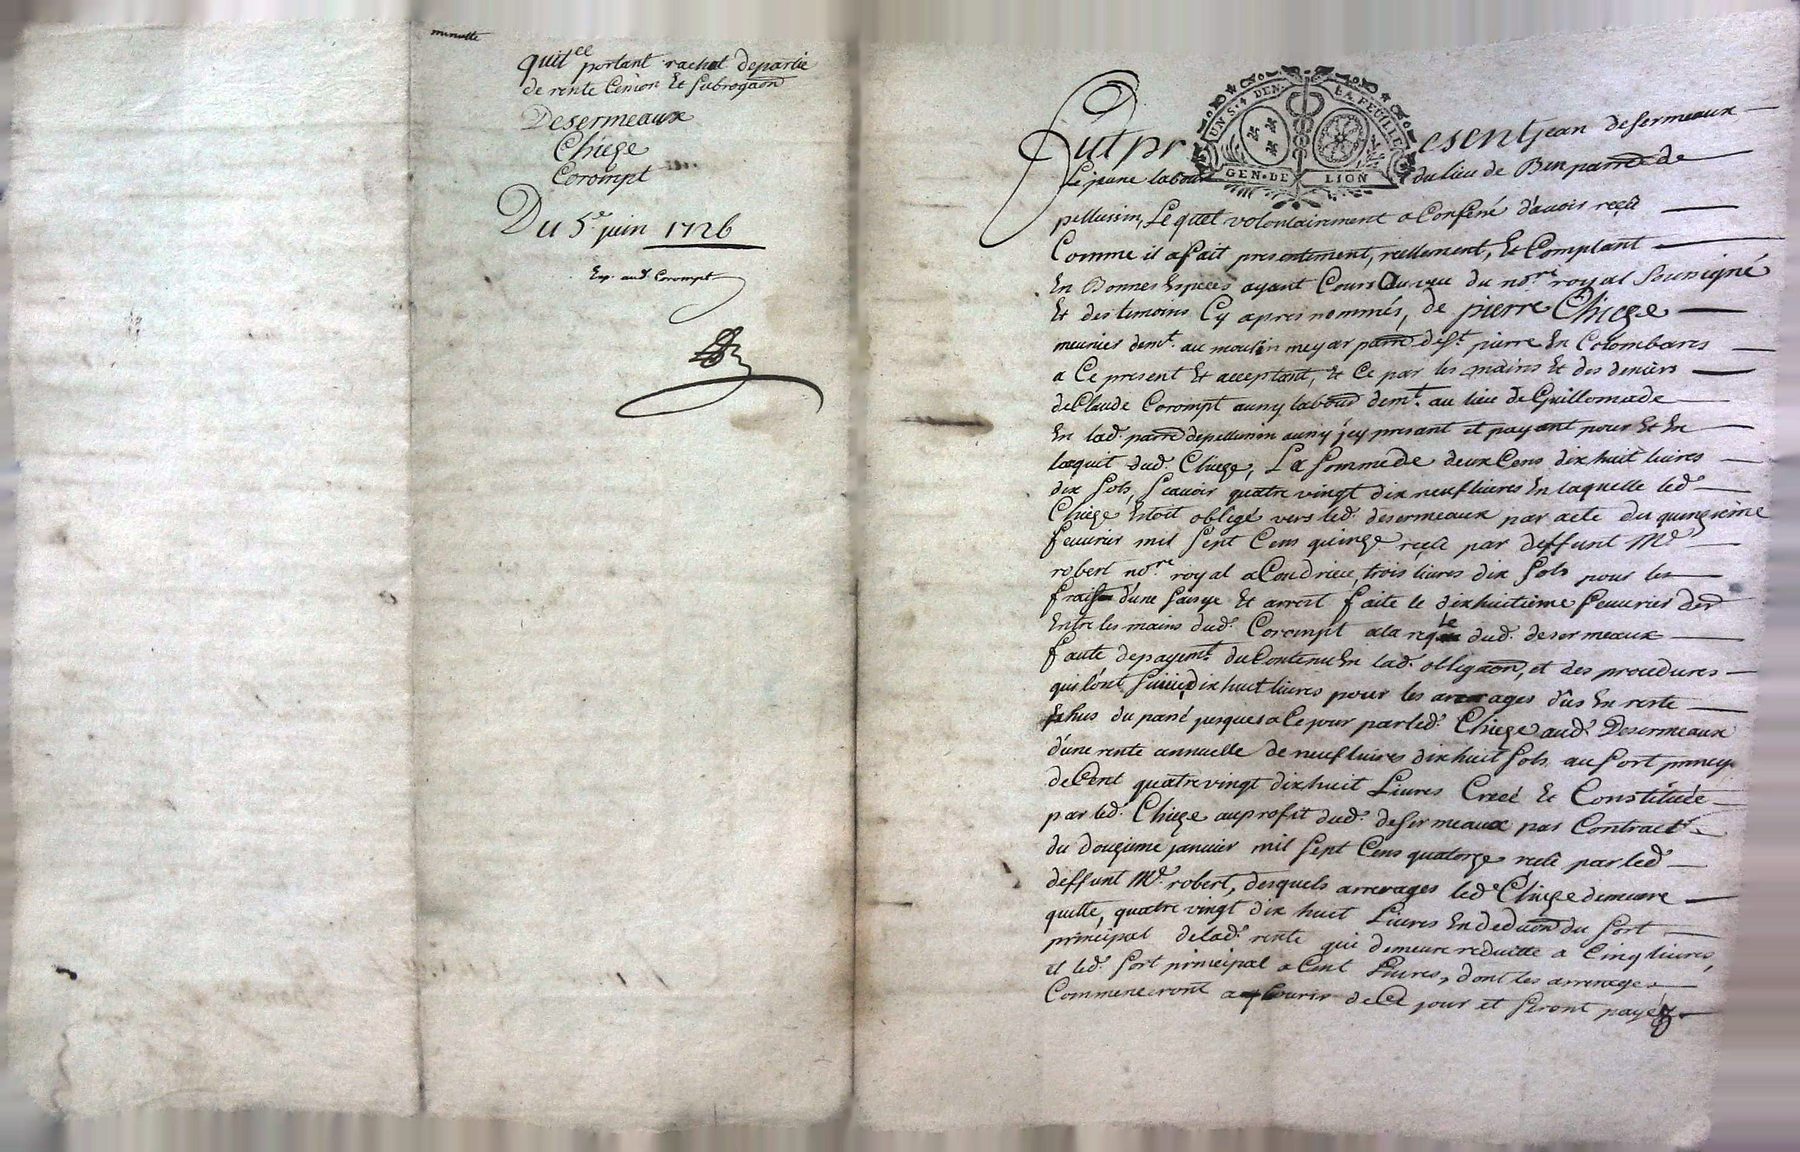 minutte
quit.ce portant rachat departie
de rente Cession Et Subrogaon
Desermeaux
Chieze
Corompt
Du 5.e juin 1726
Exp. aud. Corompt
UN S. 4 DEN. LA FEUILLE
GEN. DE LION
Fut present jean desermeaux
Le jeune labour du lieu de Bin parre de
pellussin, Lequel volontairement a Confessé d'avoir reçû
Comme il a fait presentement, reellement, Et Comptant
En Bonnes Especes ayant Cours Au veu du no.re royal Soussigné
Et des temoins Cy apres nommés, de pierre Chieze
meunier dem.t au moulin meyar parre de S.t pierre En Colombares
a Ce present Et acceptant, Et Ce par les mains Et des deniers
de Claude Corompt aussy labour dem.t au lieu de Guillomade
En lad. parre depellussin aussy jcy present et payant pour Et En
lacquit dud. Chieze, La Somme de deux Cens dix huit livres
dix Sols, Scavoir quatre vingt dix neuf livres En laquelle led.
Chieze Estoit obligé vers led. desermeaux par acte du quinzieme
fevurier mil Sept Cens quinze reçû par deffunt M.e
robert no.re royal a Condrieu, trois livres dix Sols pour les
frais d'une Saisye Et arrest faite le dixhuitieme fevurier der
Entre les mains dud. Corompt a la req.te dud. desermeaux
faute depayem.t du Contenu En lad. obligaon, et des procedures
qui l'ont Suivie, dixhuit livres pour les arrerages dûs En reste
Echus du passé jusques a Ce jour par led. Chieze aud. Desermeaux
d'une rente annuelle de neuf livres dixhuit Sols au Sort princip
de Cent quatre vingt dixhuit Livres Creé Et Constituée
par led. Chieze au profit dud. desermeaux par Contract
du douzieme janvier mil Sept Cens quatorze reçû par led.
deffunt M.e robert, desquels arrerages led. Chieze demeure
quitte, quatre vingt dix huit Livres En deduon du Sort
principal de lad. rente qui demeure reduitte a Cinq livres,
et led. Sort principal a Cent Livres, dont les arrerages
Commenceront a Courir de Ce jour et Seront payéz